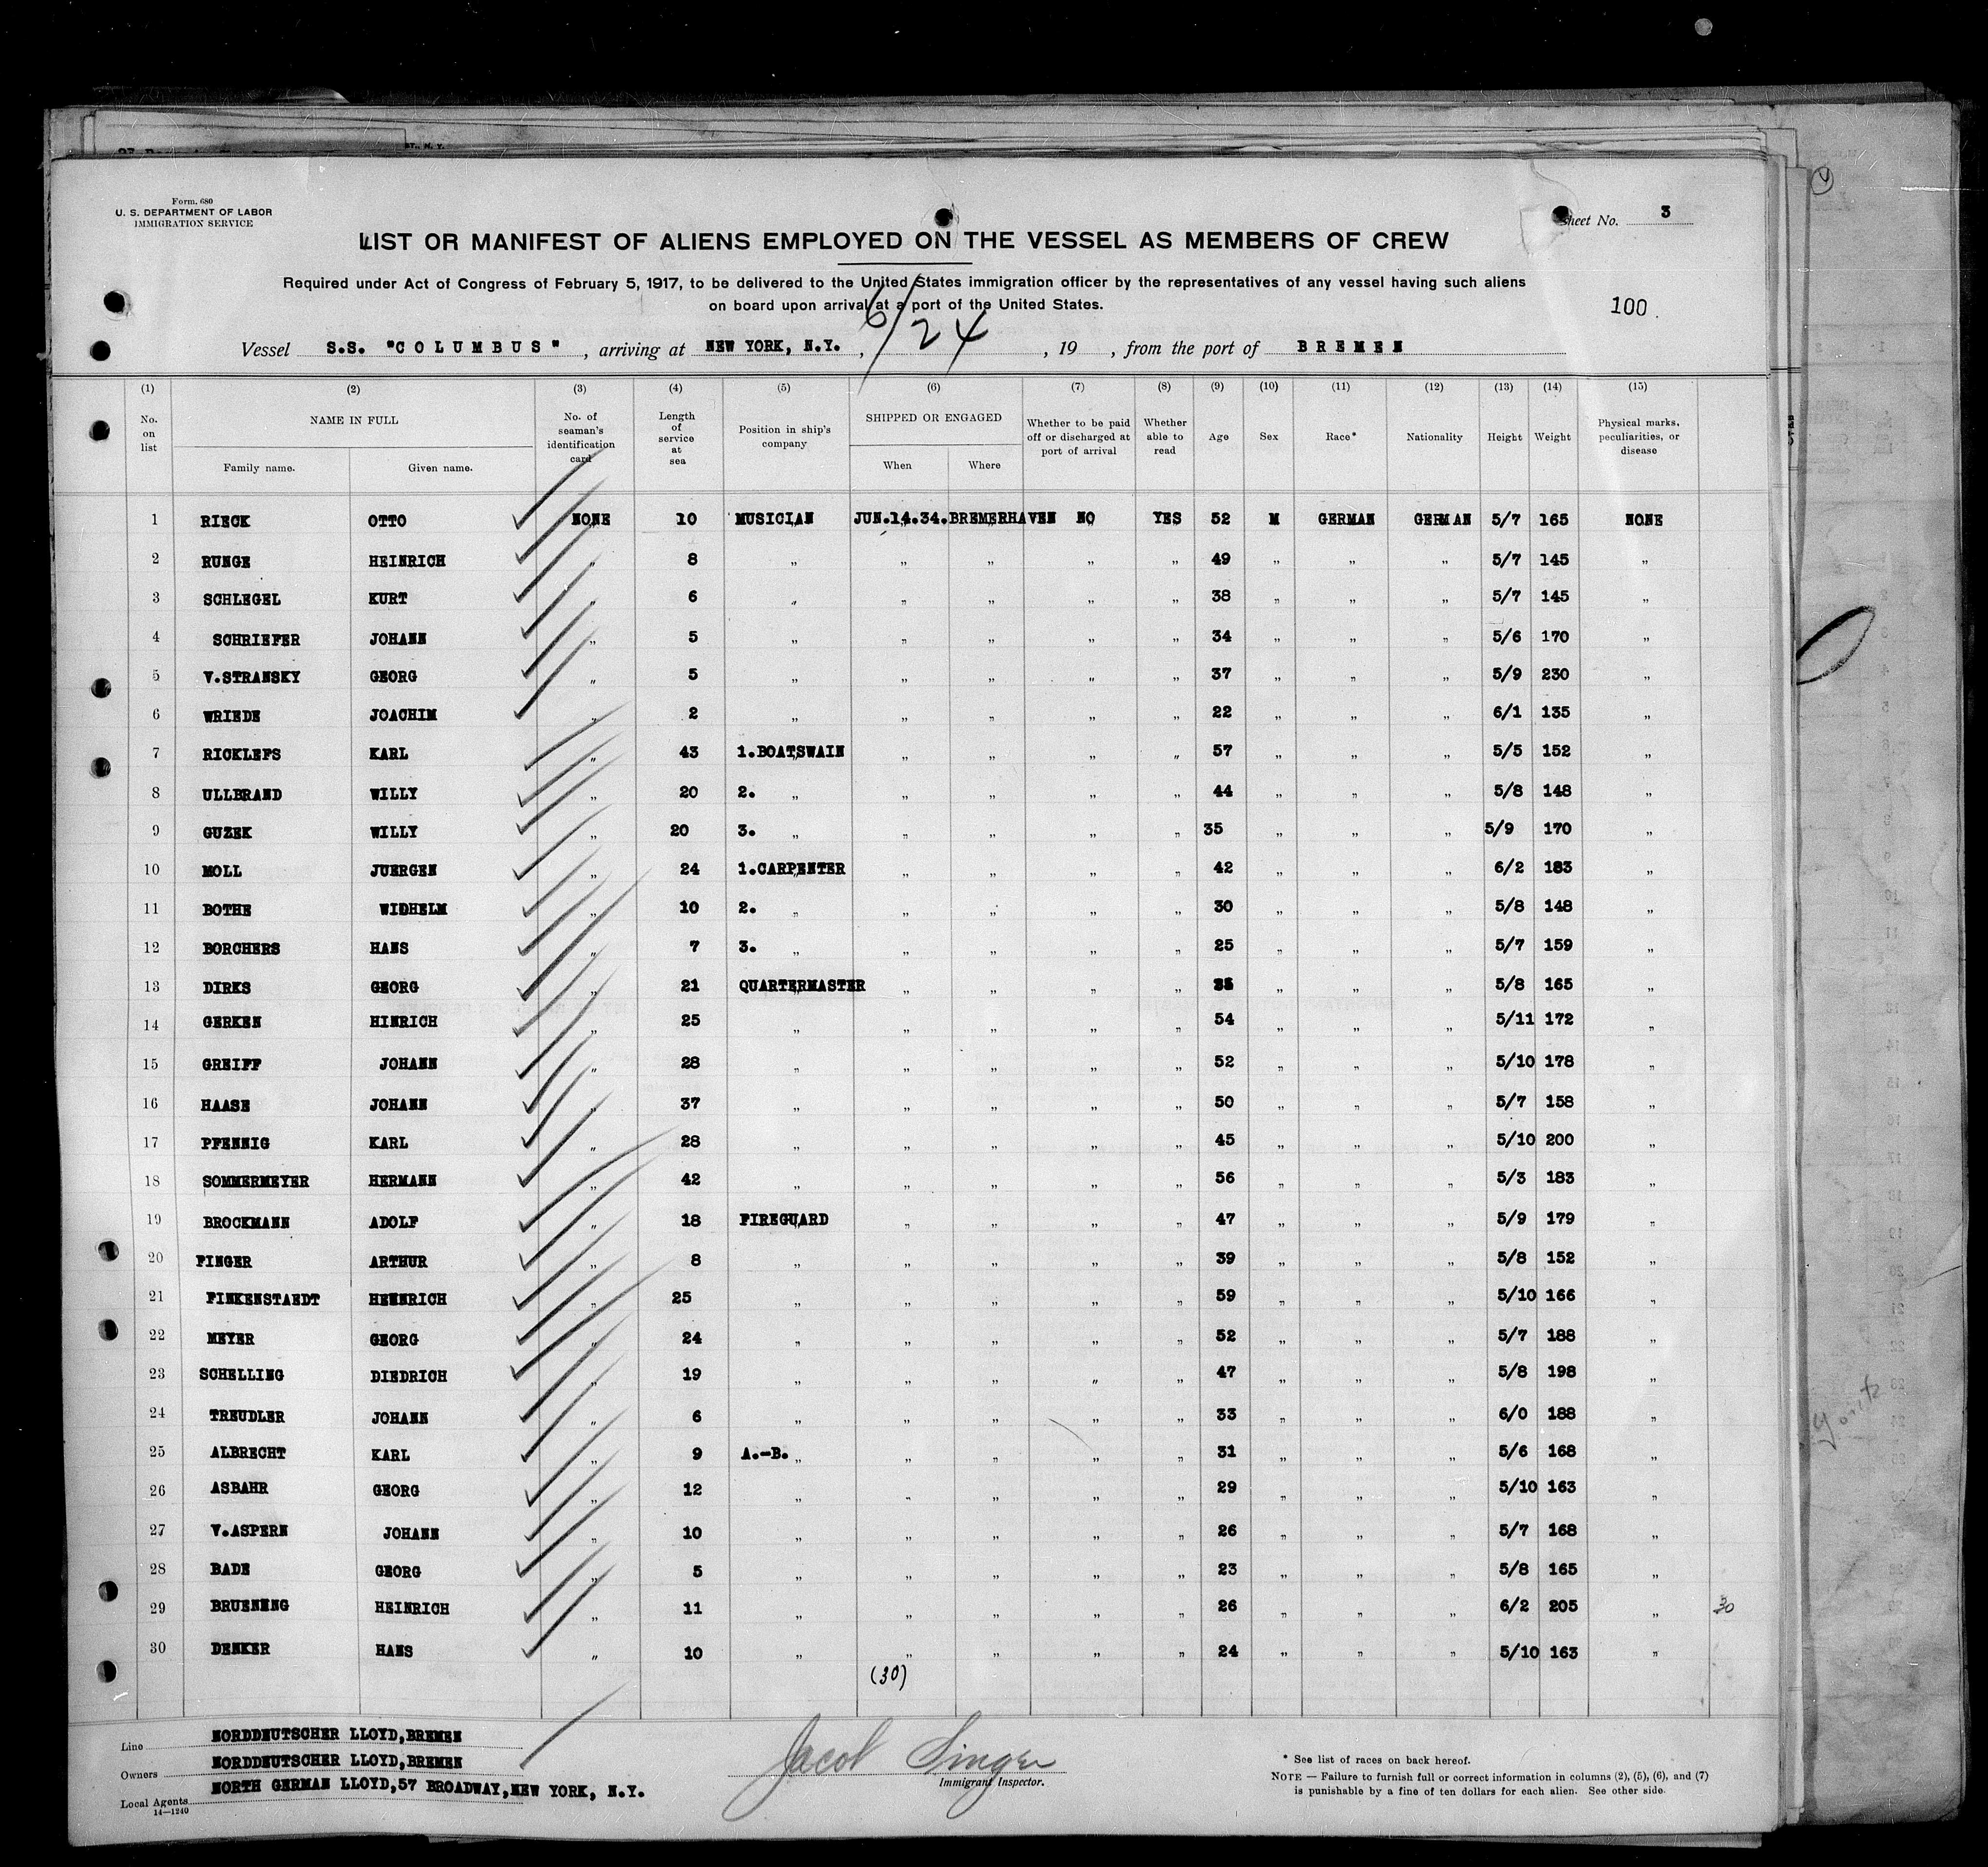 Form. 680
U. S. DEPARTMENT OF LABOR
IMMIGRATION SERVICE
Sheet No. 3
LIST OR MANIFEST OF ALIENS EMPLOYED ON THE VESSEL AS MEMBERS OF CREW
Required under Act of Congress of February 5, 1917, to be delivered to the United States immigration officer by the representatives of any vessel having such aliens
on board upon arrival at a port of the United States.
100.
Vessel S.S. "COLUMBUS", arriving at NEW YORK, N.Y., 6/24, 19 , from the port of BREMEN
(1) (2) (3) (4) (5) (6) (7) (8) (9) (10) (11) (12) (13) (14) (15)
No. on list NAME IN FULL Family name. Given name. No. of seaman's identification card Length of service at sea Position in ship's company SHIPPED OR ENGAGED When Where Whether to be paid off or discharged at port of arrival Whether able to read Age Sex Race* Nationality Height Weight Physical marks, peculiarities, or disease
1 RIECK OTTO NONE 10 MUSICIAN JUN.14.34. BREMERHAVEN NO YES 52 M GERMAN GERMAN 5/7 165 NONE
2 RUNGE HEINRICH " 8 " " " " " 49 " " " 5/7 145 "
3 SCHLEGEL KURT " 6 " " " " " 38 " " " 5/7 145 "
4 SCHRIEFER JOHANN " 5 " " " " " 34 " " " 5/6 170 "
5 V.STRANSKY GEORG " 5 " " " " " 37 " " " 5/9 230 "
6 WRIEDE JOACHIM " 2 " " " " " 22 " " " 6/1 135 "
7 RICKLEFS KARL " 43 1.BOATSWAIN " " " " 57 " " " 5/5 152 "
8 ULLBRAND WILLY " 20 2. " " " " " 44 " " " 5/8 148 "
9 GUZEK WILLY " 20 3. " " " " " 35 " " " 5/9 170 "
10 MOLL JUERGEN " 24 1.CARPENTER " " " " 42 " " " 6/2 183 "
11 BOTHE WIDHELM " 10 2. " " " " " 30 " " " 5/8 148 "
12 BORCHERS HANS " 7 3. " " " " " 25 " " " 5/7 159 "
13 DIRKS GEORG " 21 QUARTERMASTER " " " " " " " 5/8 165 "
14 GERKEN HINRICH " 25 " " " " " 54 " " " 5/11 172 "
15 GREIFF JOHANN " 28 " " " " " 52 " " " 5/10 178 "
16 HAASE JOHANN " 37 " " " " " 50 " " " 5/7 158 "
17 PFENNIG KARL " 28 " " " " " 45 " " " 5/10 200 "
18 SOMMERMEYER HERMANN " 42 " " " " " 56 " " " 5/3 183 "
19 BROCKMANN ADOLF " 18 FIREGUARD " " " " 47 " " " 5/9 179 "
20 FINGER ARTHUR " 8 " " " " " 39 " " " 5/8 152 "
21 FINKENSTAEDT HEINRICH " 25 " " " " " 59 " " " 5/10 166 "
22 MEYER GEORG " 24 " " " " " 52 " " " 5/7 188 "
23 SCHELLING DIEDRICH " 19 " " " " " 47 " " " 5/8 198 "
24 TREUDLER JOHANN " 6 " " " " " 33 " " " 6/0 188 "
25 ALBRECHT KARL " 9 A.-B. " " " " " 31 " " " 5/6 168 "
26 ASBAHR GEORG " 12 " " " " " 29 " " " 5/10 163 "
27 V.ASPERN JOHANN " 10 " " " " " 26 " " " 5/7 168 "
28 BADE GEORG " 5 " " " " " 23 " " " 5/8 165 "
29 BRUENING HEINRICH " 11 " " " " " 26 " " " 6/2 205 "
30 DENKER HANS " 10 " " " " " 24 " " " 5/10 163 "
(30)
Line NORDDEUTSCHER LLOYD,BREMEN
Owners NORDDEUTSCHER LLOYD,BREMEN
Local Agents NORTH GERMAN LLOYD,57 BROADWAY,NEW YORK, N.Y.
14—1240
Jacob Singer
Immigrant Inspector.
* See list of races on back hereof.
NOTE — Failure to furnish full or correct information in columns (2), (5), (6), and (7)
is punishable by a fine of ten dollars for each alien. See other side.